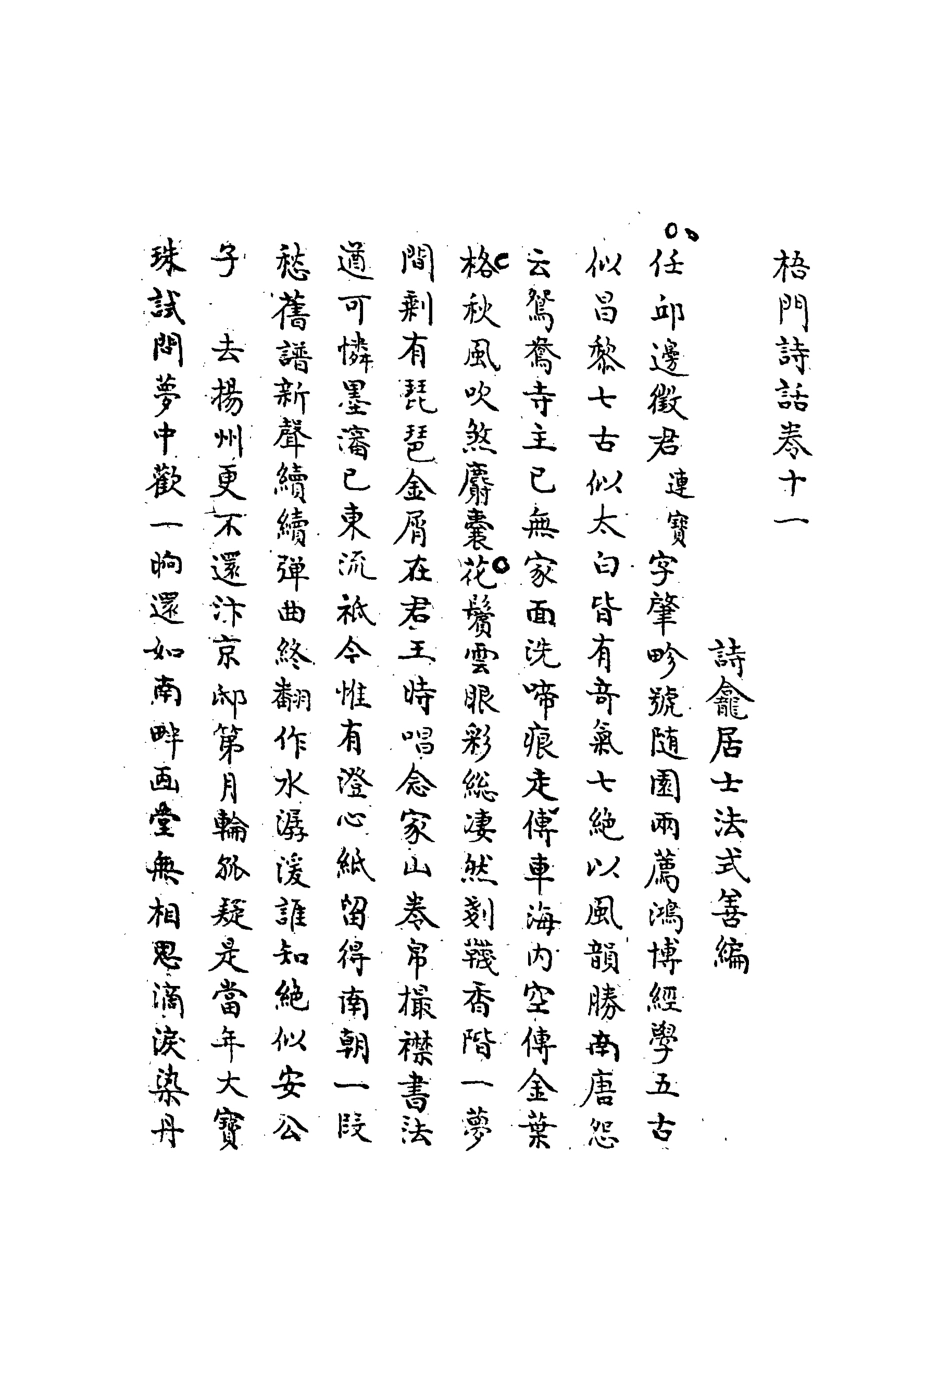 梧門詩話卷十一
詩龕居士法式善編
任邱邊徵君連寶字肇畛號随園兩薦鴻博經學五古
似昌黎七古似太白皆有奇氣七絶以風韻勝南唐怨
云鴛鴦寺主已無家面洗啼痕走傳車海内空傳金葉
格秋風吹煞麝囊花鬢雲眼彩總凄然剗韈香階一夢
間剩有琵琶金屑在君王時唱念家山卷帛撮襟書法
遒可憐墨瀋已東流祗今惟有澄心紙留得南朝一段
愁舊譜新聲續續弹曲終翻作水潺湲誰知絶似安公
子 去揚州更不還汴京邸第月輪孤疑是當年大寶
珠試問夢中歡一晌還如南畔画堂無相思滴淚染丹